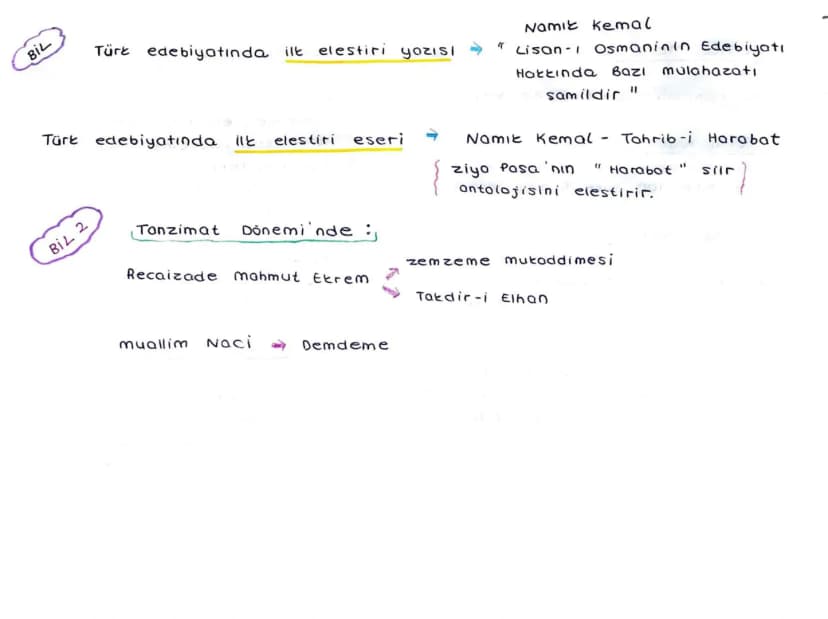 BİL
Namık Kemal
Türk edebiyatında ilk elestiri yazısı → " Lisan-ı Osmaninin Edebiyatı
Hakkında Bazı mulahazatı
samildir "
Türk edebiyatında ilk elestiri eseri → Namık Kemal - Tahrib-i Harabat
{ ziya Pasa'nın " Harabat " siir }
antolojisini elestirir.
BİL 2
Tanzimat Dönemi'nde :
zemzeme mukaddimesi
Recaizade mahmut Ekrem
Takdir-i Elhan
muallim Naci → Demdeme